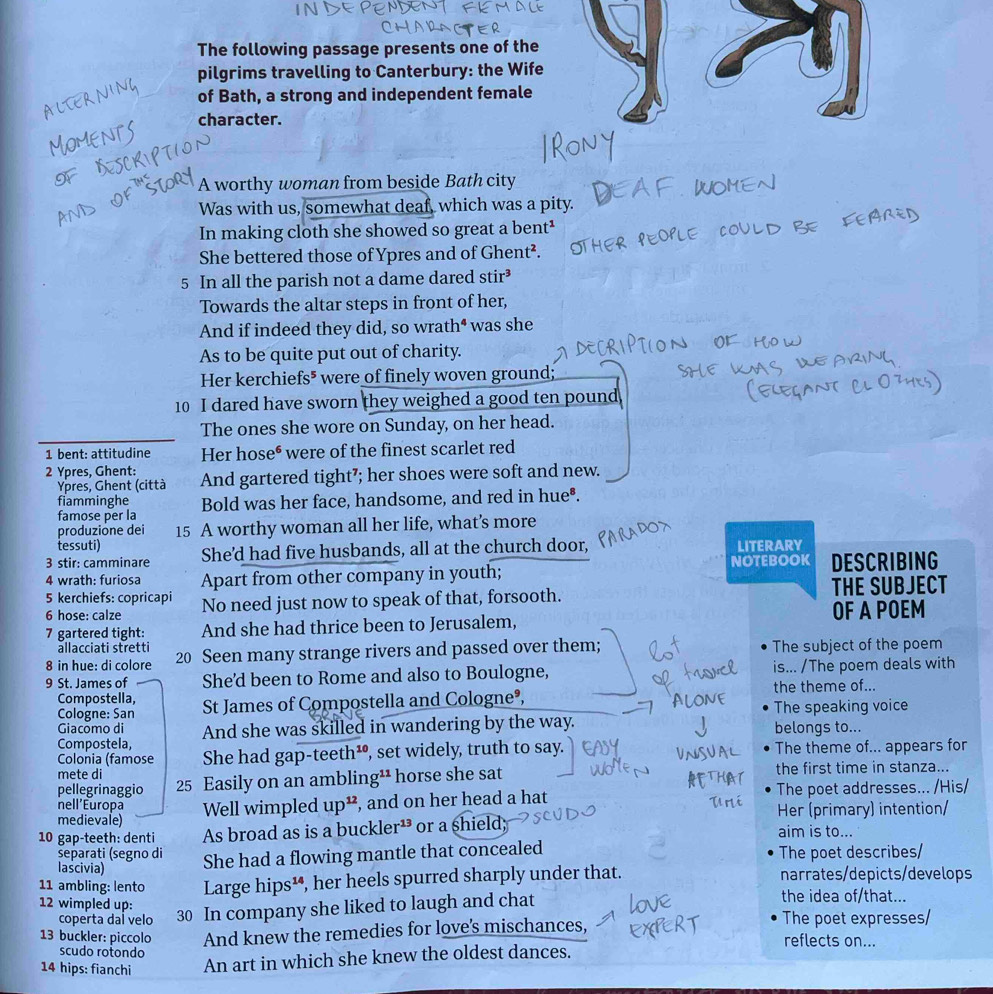 INDEPENDENT FEMALE
CHARACTER
The following passage presents one of the
pilgrims travelling to Canterbury: the Wife
of Bath, a strong and independent female
character.
ALTERNING
MOMENTS
OF DESCRIPTION
AND OF THE STORY
IRONY
A worthy woman from beside Bath city
DEAF WOMEN
Was with us, somewhat deaf, which was a pity.
In making cloth she showed so great a bent¹
OTHER PEOPLE COULD BE FEARED
She bettered those of Ypres and of Ghent².
5 In all the parish not a dame dared stir³
Towards the altar steps in front of her,
And if indeed they did, so wrath⁴ was she
As to be quite put out of charity.
DECRIPTION OF HOW
SHE WAS WEARING
(ELEGANT CLOTHES)
Her kerchiefs⁵ were of finely woven ground;
10 I dared have sworn they weighed a good ten pound,
The ones she wore on Sunday, on her head.
Her hose⁶ were of the finest scarlet red
And gartered tight⁷; her shoes were soft and new.
Bold was her face, handsome, and red in hue⁸.
15 A worthy woman all her life, what's more
She'd had five husbands, all at the church door, PARADOX
Apart from other company in youth;
No need just now to speak of that, forsooth.
And she had thrice been to Jerusalem,
20 Seen many strange rivers and passed over them;
She'd been to Rome and also to Boulogne,
St James of Compostella and Cologne⁹,
lot
of travel
ALONE
UNSUAL
AT THAT
TIME
BRAVE
And she was skilled in wandering by the way.
She had gap-teeth¹⁰, set widely, truth to say.
EASY
WOMEN
25 Easily on an ambling¹¹ horse she sat
Well wimpled up¹², and on her head a hat
As broad as is a buckler¹³ or a shield; → SCUDO
She had a flowing mantle that concealed
Large hips¹⁴, her heels spurred sharply under that.
30 In company she liked to laugh and chat
And knew the remedies for love's mischances,
LOVE
EXPERT
An art in which she knew the oldest dances.
1 bent: attitudine
2 Ypres, Ghent:
Ypres, Gent (città
fiamminghe
famose per la
produzione dei
tessuti)
3 stir: camminare
4 wrath: furiosa
5 kerchiefs: copricapi
6 hose: calze
7 gartered tight:
allacciati stretti
8 in hue: di colore
9 St. James of
Compostella,
Cologne: San
Giacomo di
Compostela,
Colonia (famose
mete di
pellegrinaggio
nell'Europa
medievale)
10 gap-teeth: denti
separati (segno di
lascivia)
11 ambling: lento
12 wimpled up:
coperta dal velo
13 buckler: piccolo
scudo rotondo
14 hips: fianchi
LITERARY
NOTEBOOK
DESCRIBING
THE SUBJECT
OF A POEM
• The subject of the poem
is... /The poem deals with
the theme of...
• The speaking voice
belongs to...
• The theme of... appears for
the first time in stanza...
• The poet addresses... /His/
Her (primary) intention/
aim is to...
• The poet describes/
narrates/depicts/develops
the idea of/that...
• The poet expresses/
reflects on...